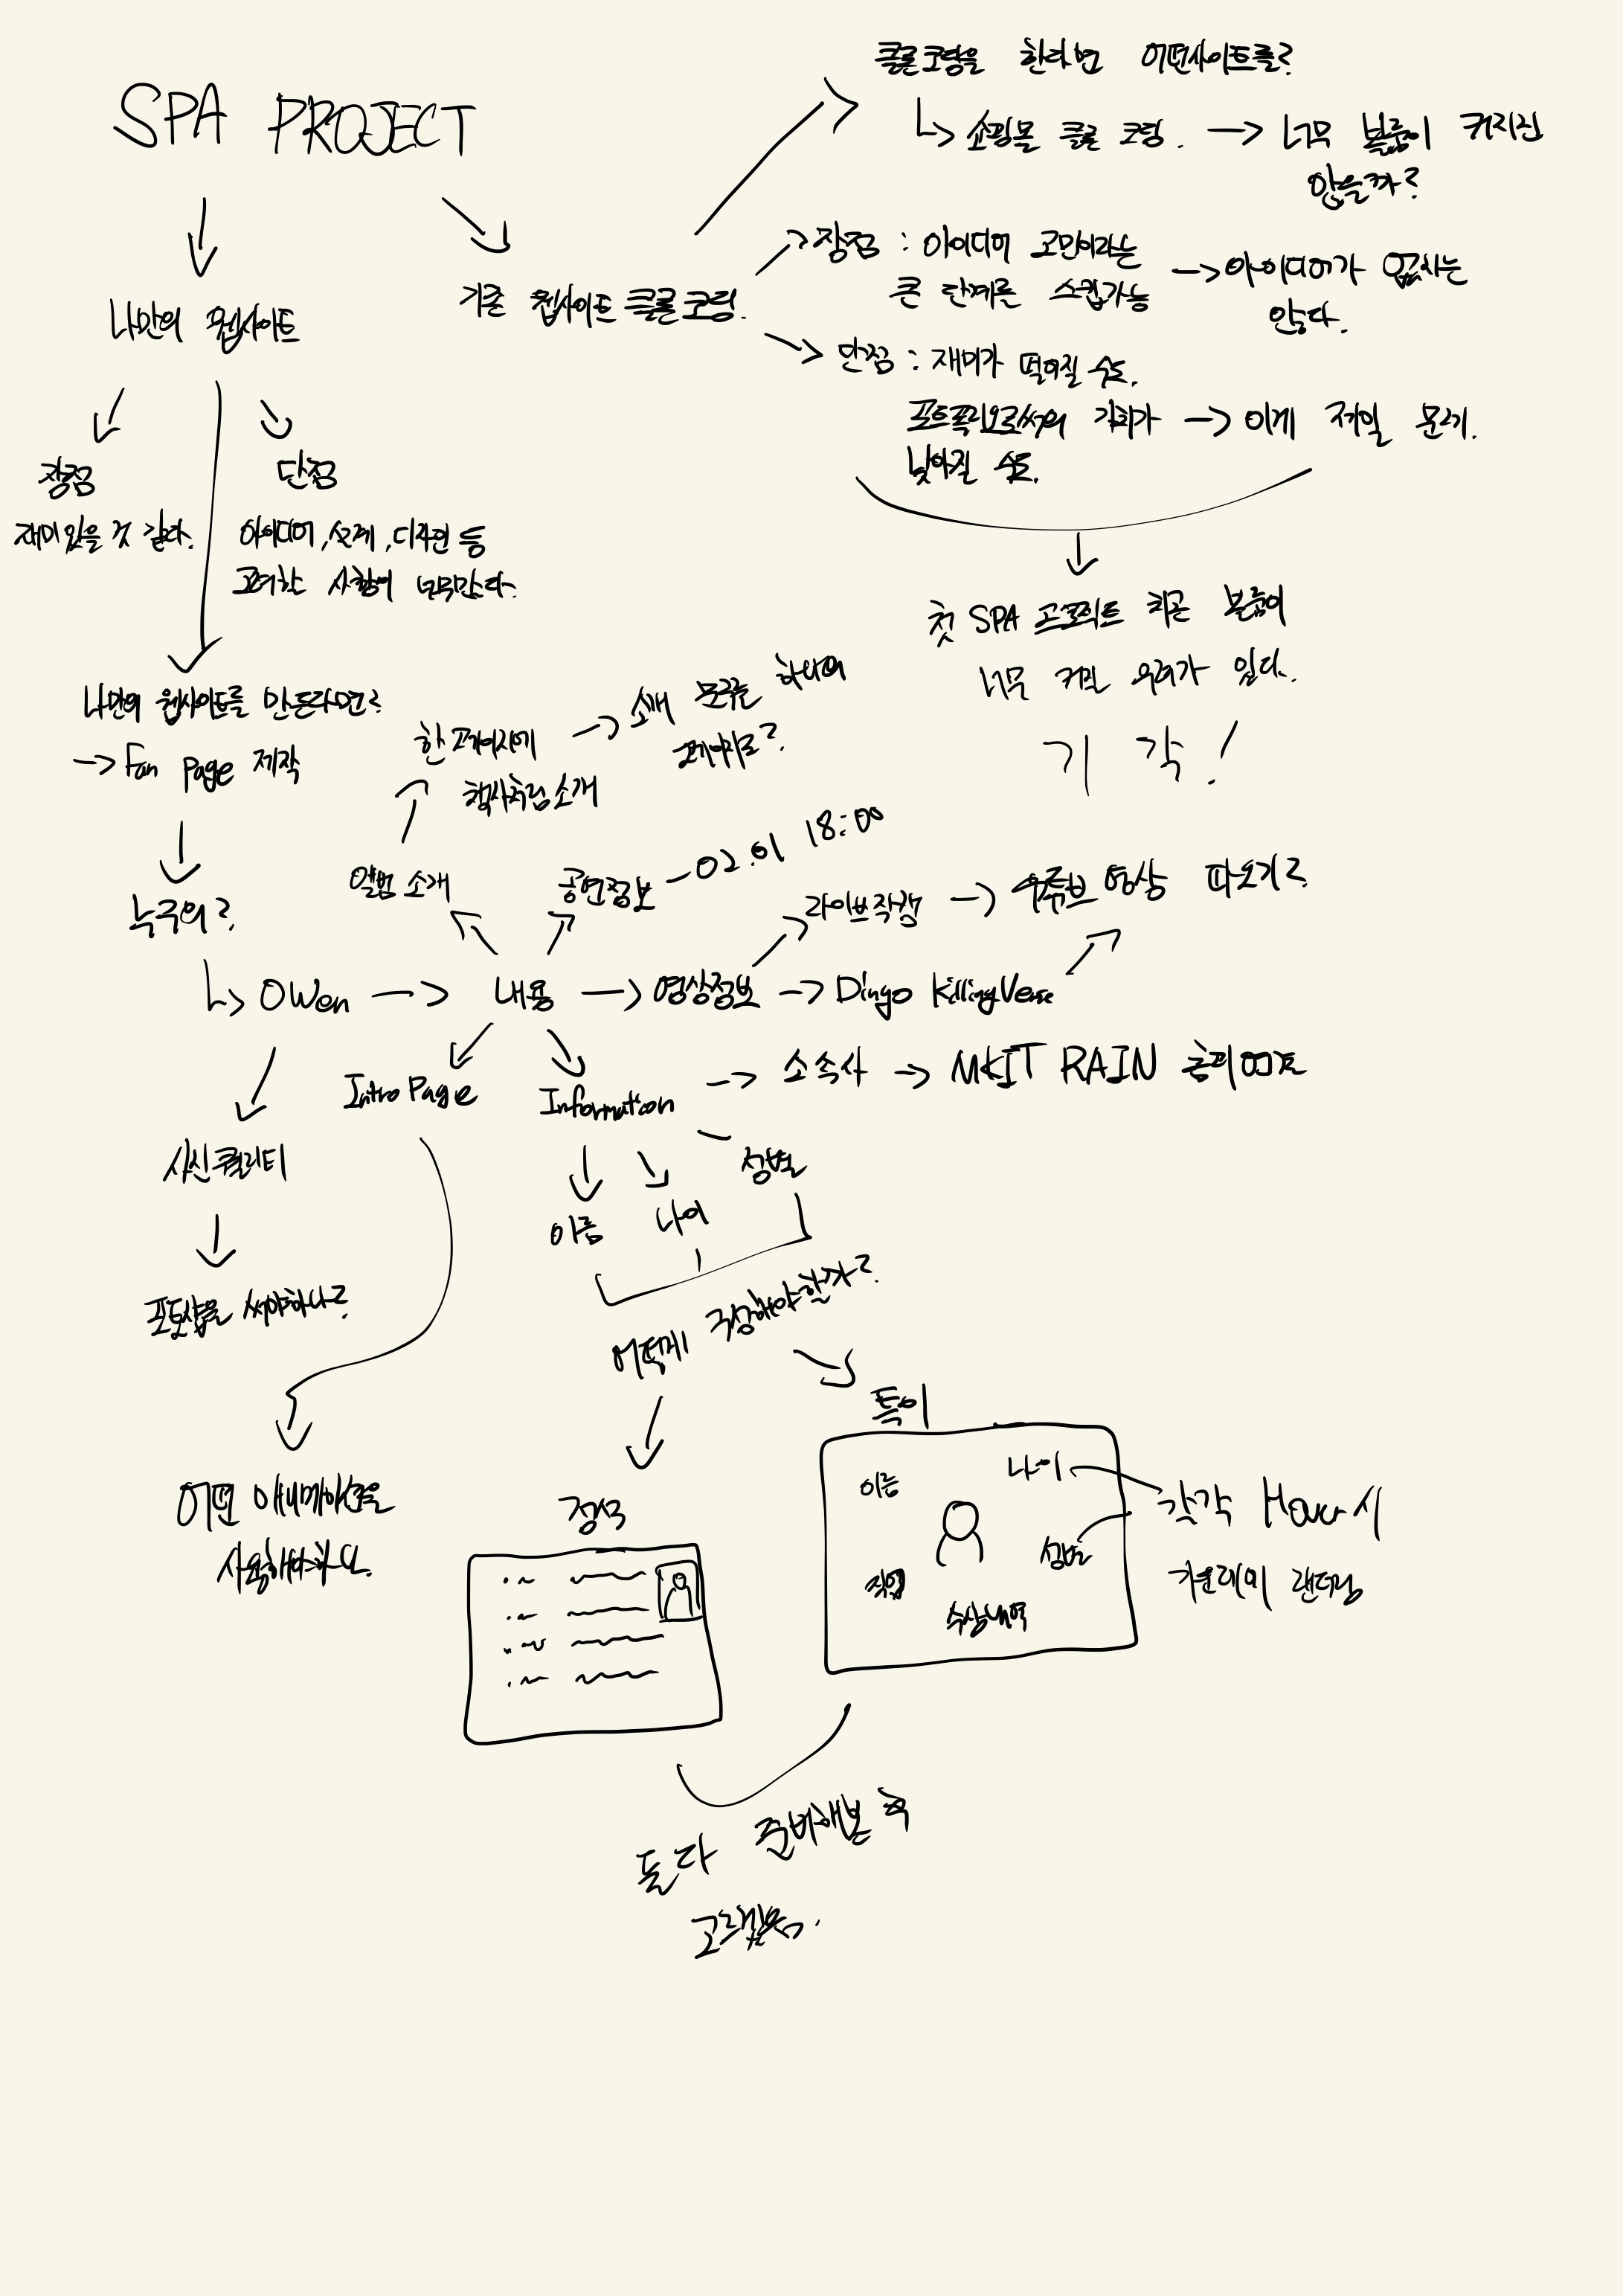 SPA PROJECT
클론코딩을 한다면 어떤사이트를?
쇼핑몰 클론 코딩. → 너무 볼륨이 커지진
않을까?
나만의 웹사이트
기존 웹사이트 클론 코딩.
장점 : 아이디어 고민이라는
큰 단계를 스킵가능
→ 아이디어가 없지는
않다.
단점 : 재미가 떨어질 수도.
포트폴리오로써의 가치가 → 이게 제일 문제.
낮아질 수도.
장점
재미있을 것 같다.
단점
아이디어, 설계, 디자인 등
고려할 사항이 너무많다.
첫 SPA 프로젝트 치곤 볼륨이
너무 커질 우려가 있다.
기각!
나만의 웹사이트를 만든다면?
→ Fan Page 제작
누구의?
한 페이지에
책사처럼 소개
→ 소개 문구를 하나의
페이지로?
앨범 소개
공연정보 - 02.01 18:00
라이브작업 → 유튜브 영상 따오기?
Owen → 내용 → 영상정보 → Dingo Killing Verse
Intro Page
Information → 소속사 → MKIT RAIN 홈피 링크
사진 퀄리티
포토샵을 써야하나?
이름
나이
성별
어떻게 구성해야할까?
어떤 애니메이션을
사용해야하나.
정석
특이
이름
나이
직업
성별
수상내역
각각 Hover시
가운데에 랜더링
둘다 준비해본 후
고르겠음.